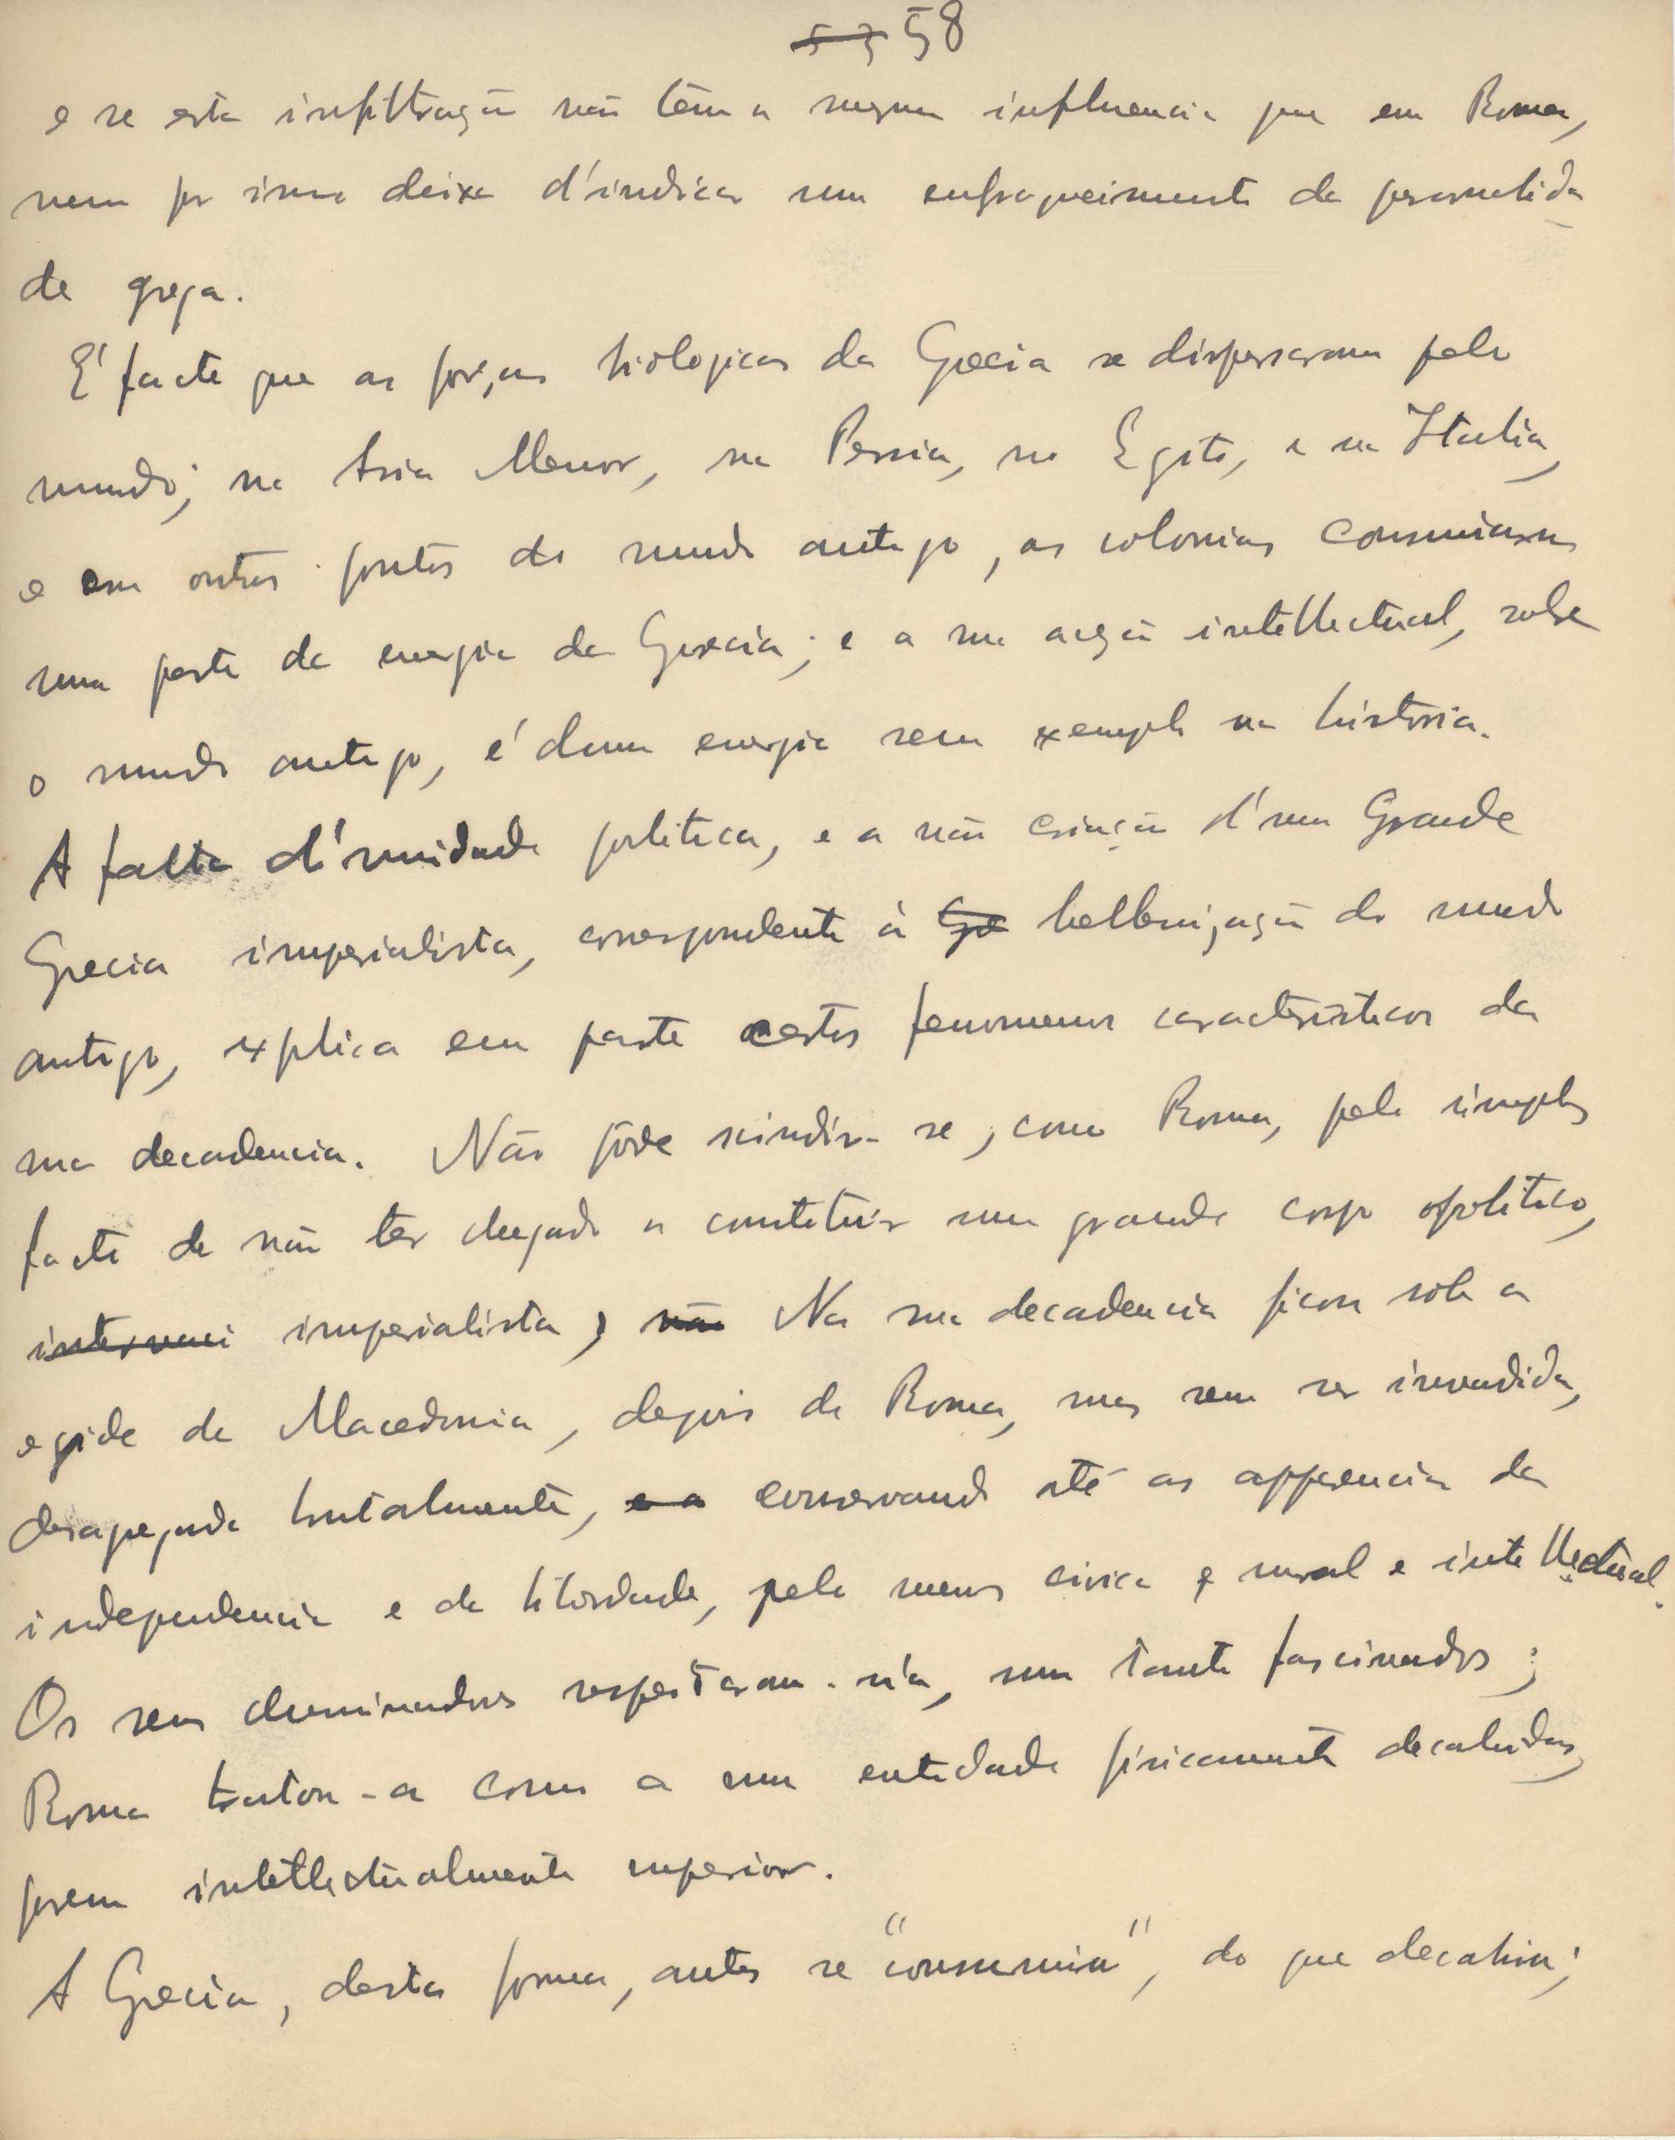 58
e se esta infiltração não têm a mesma influencia que em Roma,
nem por isso deixa d'indicar um enfraqueimento da personalida
de grega.
É facto que as forças biologicas da Grecia se dispersaram pelo
mundo; na Asia Menor, na Persia, no Egito, e na Italia,
e em outros pontos do mundo antigo, as colonias consumiam
uma parte da energia da Grecia; e a sua acção intellectual, sobre
o mundo antigo, é duma energia sem exemplo na historia.
A falta d'unidade politica, e a não criação d'uma Grande
Grecia imperialista, correspondente à hellenização do mundo
antigo, explica em parte certos fenomenos caracteristicos da
sua decadencia. Não pôde scindir-se, como Roma, pelo simples
facto de não ter chegado a constituir um grande corpo politico,
imperialista, Na sua decadencia ficou sob a
egide da Macedonia, depois de Roma, mas sem ser invadida,
desagregada brutalmente, conservando até as apparencias da
independencia e da liberdade, pelo menos civica e moral e intellectual.
Os seus dominadores respeitaram-n'a, um tanto fascinados;
Roma tratou-a como a uma entidade fisicamente decahida,
porem intellectualmente superior.
A Grecia, desta forma, antes se "consumiu", do que decahiu;